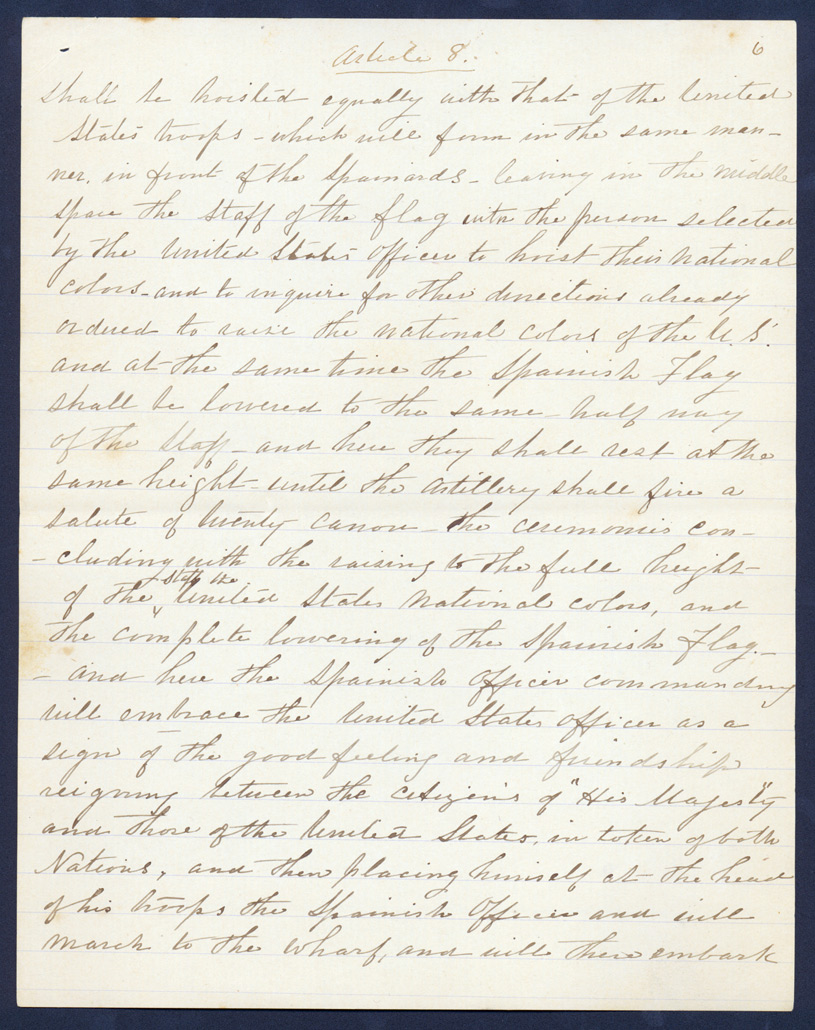 Article 8.
6
shall be hoisted equally with that of the United
States troops - which will form in the same man-
ner. in front of the Spaniards - leaving in the middle
space the staff of the flag with the person selected
by the United States Officer to hoist their National
colors - and to inquire for other directions already
ordered to raise the national colors of the U.S.
and at the same time the Spanish Flag
shall be lowered to the same - half way
of the staff - and here they shall rest at the
same height - until the Artillery shall fire a
salute of twenty canon - the ceremonies con-
- cluding with the raising to the full height
staff the
of the United States National colors, and
the complete lowering of the Spanish Flag. -
- and here the Spanish Officer commanding
will embrace the United States Officer as a
sign of the good feeling and friendship
reigning between the citizens of "His Majesty"
and those of the United States, in token of both
Nations, and then placing himself at the head
of his troops the Spanish Officer and will
march to the wharf, and will there embark